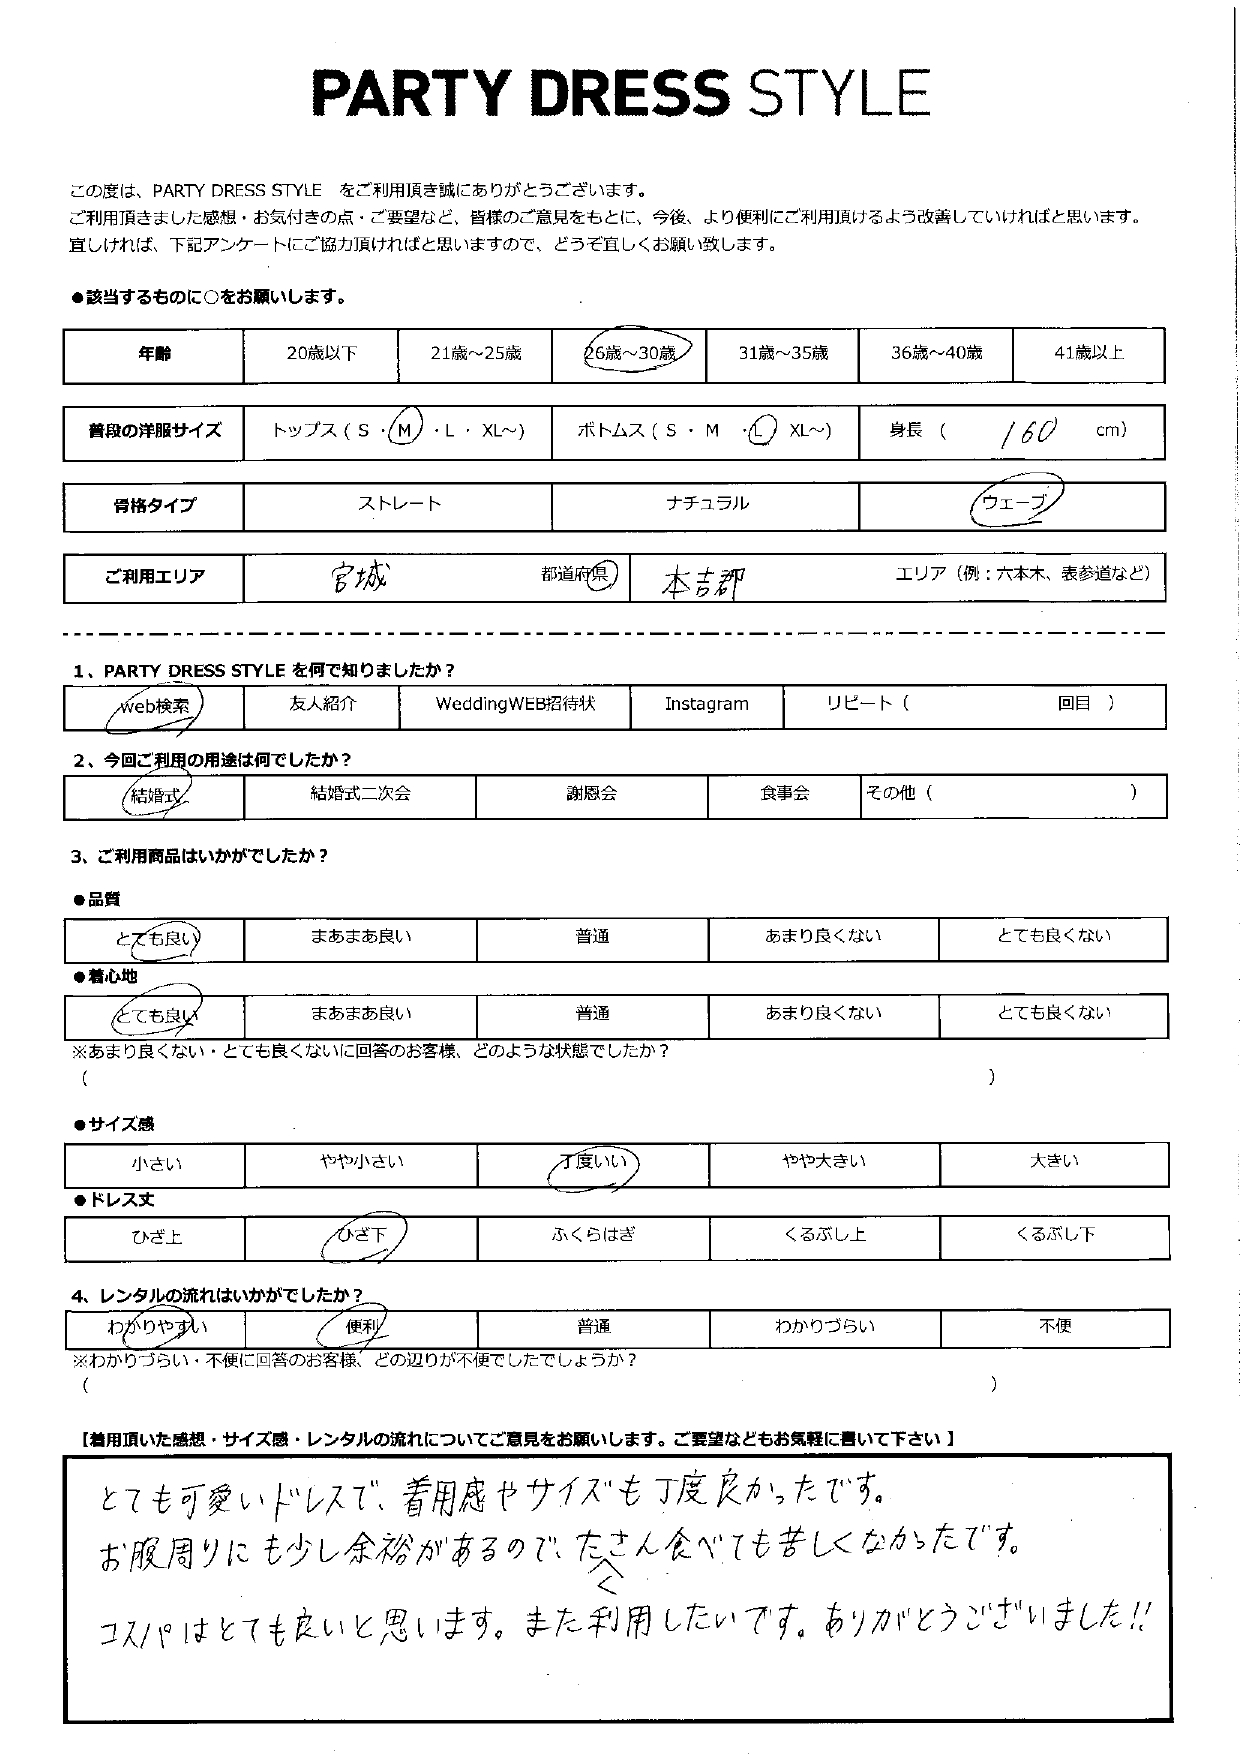 PARTY DRESS STYLE
この度は、PARTY DRESS STYLE をご利用頂き誠にありがとうございます。
ご利用頂きました感想・お気付きの点・ご要望など、皆様のご意見をもとに、今後、より便利にご利用頂けるよう改善していければと思います。
宜しければ、下記アンケートにご協力頂ければと思いますので、どうぞ宜しくお願い致します。
●該当するものに○をお願いします。
年齢 20歳以下 21歳～25歳 26歳～30歳 31歳～35歳 36歳～40歳 41歳以上
普段の洋服サイズ トップス ( S ・ M ・ L ・ XL～) ボトムス ( S ・ M ・ L XL～) 身長 ( 160 cm)
骨格タイプ ストレート ナチュラル ウェーブ
ご利用エリア 宮城 都道府県 本吉郡 エリア（例：六本木、表参道など）
1、PARTY DRESS STYLE を何で知りましたか？
web検索 友人紹介 WeddingWEB招待状 Instagram リピート（ 回目 ）
2、今回ご利用の用途は何でしたか？
結婚式 結婚式二次会 謝恩会 食事会 その他（ ）
3、ご利用商品はいかがでしたか？
●品質
とても良い まあまあ良い 普通 あまり良くない とても良くない
●着心地
とても良い まあまあ良い 普通 あまり良くない とても良くない
※あまり良くない・とても良くないに回答のお客様、どのような状態でしたか？
( )
●サイズ感
小さい やや小さい 丁度いい やや大きい 大きい
●ドレス丈
ひざ上 ひざ下 ふくらはぎ くるぶし上 くるぶし下
4、レンタルの流れはいかがでしたか？
わかりやすい 便利 普通 わかりづらい 不便
※わかりづらい・不便に回答のお客様、どの辺りが不便でしたでしょうか？
( )
【着用頂いた感想・サイズ感・レンタルの流れについてご意見をお願いします。ご要望などもお気軽に書いて下さい 】
とても可愛いドレスで、着用感やサイズも丁度良かったです。
お腹周りにも少し余裕があるので、たくさん食べても苦しくなかったです。
コスパはとても良いと思います。また利用したいです。ありがとうございました!!